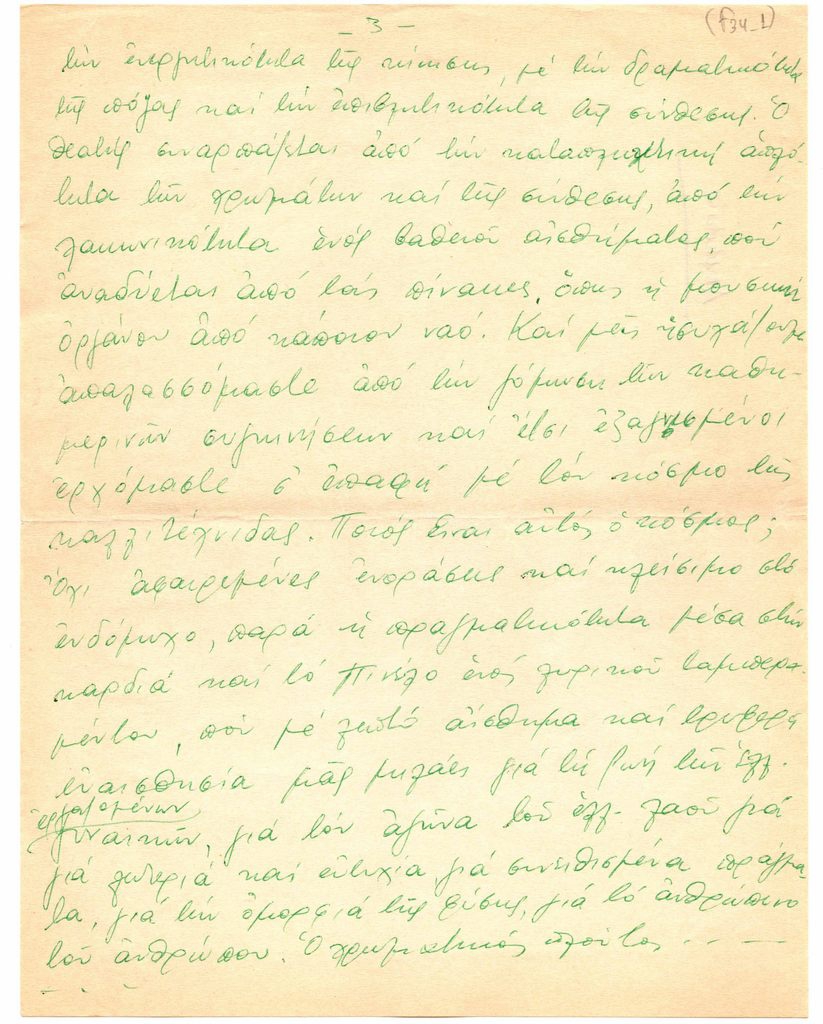 - 3 -
(f34_1)
τὴν ἐνεργητικότητα τῆς κίνησης, μέ τὴν δραματικότητα
τῆς πόζας καί τὴν ἐπιβλητικότητα τῆς σύνθεσης. Ὁ
θεατής συναρπάζεται ἀπό τὴν καταπληκτική ἁπλό-
τητα τῶν χρωμάτων καί τῆς σύνθεσης, ἀπό τὴν
λακωνικότητα ἑνός βαθειοῦ αἰσθήματος, πού
ἀναδύεται ἀπό τούς πίνακες, ὅπως ἡ μουσική
ὀργάνου ἀπό κάποιον ναό. Καί μεῖς ἡσυχάζουμε
ἀπαλασσόμαστε ἀπό τὴν τῶν καθη-
μερινῶν συγκινήσεων καί ἔτσι ἐξαγνισμένοι
ἐρχόμαστε σ' ἐπαφή μέ τόν κόσμο τῆς
καλλιτέχνιδας. Ποιός εἶναι αὐτός ὁ κόσμος;
Ὄχι ἀφαιρεμένες ἐκφράσεις καί κλείσιμο στό
ἐνδόμυχο, παρά ἡ πραγματικότητα μέσα στήν
καρδιά καί τό πινέλο ἑνός λυρικοῦ ταμπερα-
μέντου, πού μέ ζεστό αἴσθημα καί τρυφερή
εὐαισθησία μᾶς μιλάει γιά τή ζωή τῶν ἑλλ.
ἐργαζομένων
γυναικῶν, γιά τόν ἀγῶνα τοῦ ἑλλ. λαοῦ γιά
γιά λυτεριά καί εὐτυχία, γιά συνειθισμένα πράγμα-
τα, γιά τὴν ὀμορφιά τῆς φύσης, γιά τό ἀνθρώπινο
τοῦ ἀνθρώπου. Ὁ χρωματικός πλοῦτος - - —
- . .